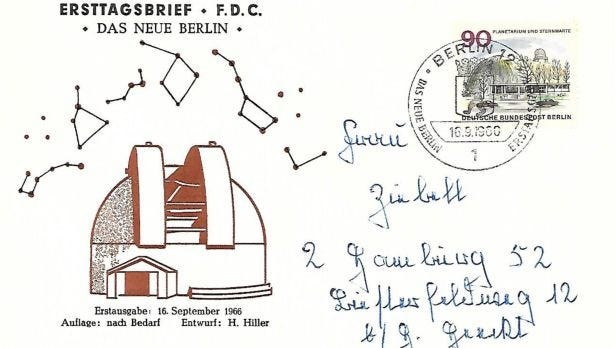 ERSTTAGSBRIEF · F.D.C.
· DAS NEUE BERLIN ·
90 PLANETARIUM UND STERNWARTE
DEUTSCHE BUNDESPOST BERLIN
BERLIN 12
· DAS NEUE BERLIN
16.9.1966
1
Herrn
2 Hamburg 52
12
Erstausgabe: 16. September 1966
Auflage: nach Bedarf Entwurf: H. Hiller